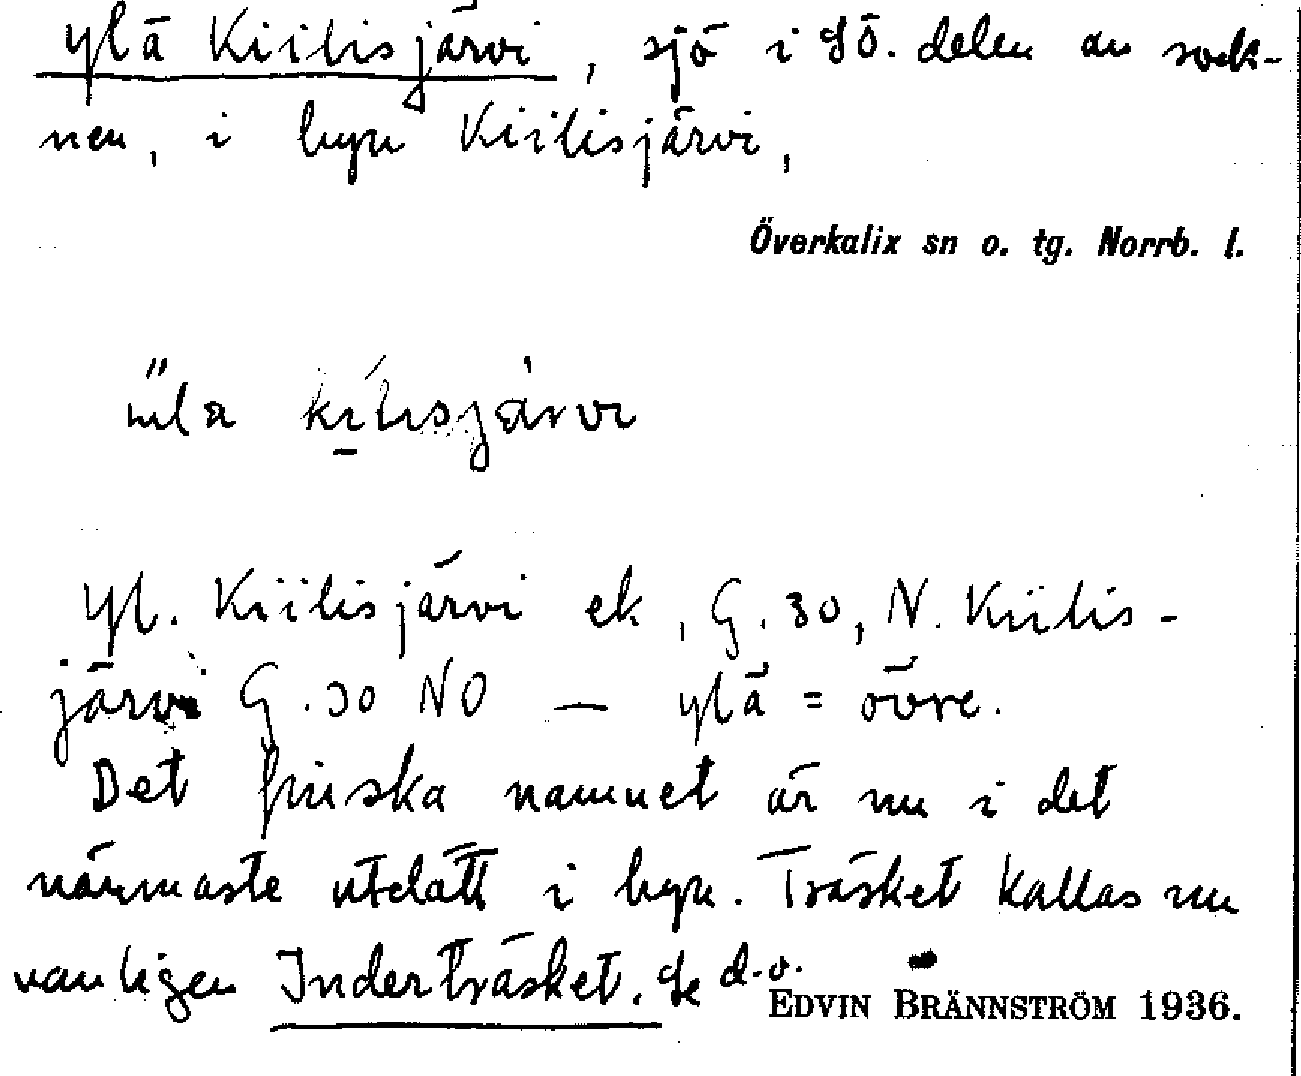 ylä Kiilisjärvi, sjö i SÖ. delen av sock-
nen, i byn Kiilisjärvi,
Överkalix sn o. tg. Norrb. l.
Yl. Kiilisjärvi ek, G. 30, N. Kiilis-
järvi G. 30 NO — ylä = övre.
Det finska namnet är nu i det
närmaste utdött i byn. Träsket kallas nu
vanligen Inderträsket. Se d.o.
EDVIN BRÄNNSTRÖM 1936.